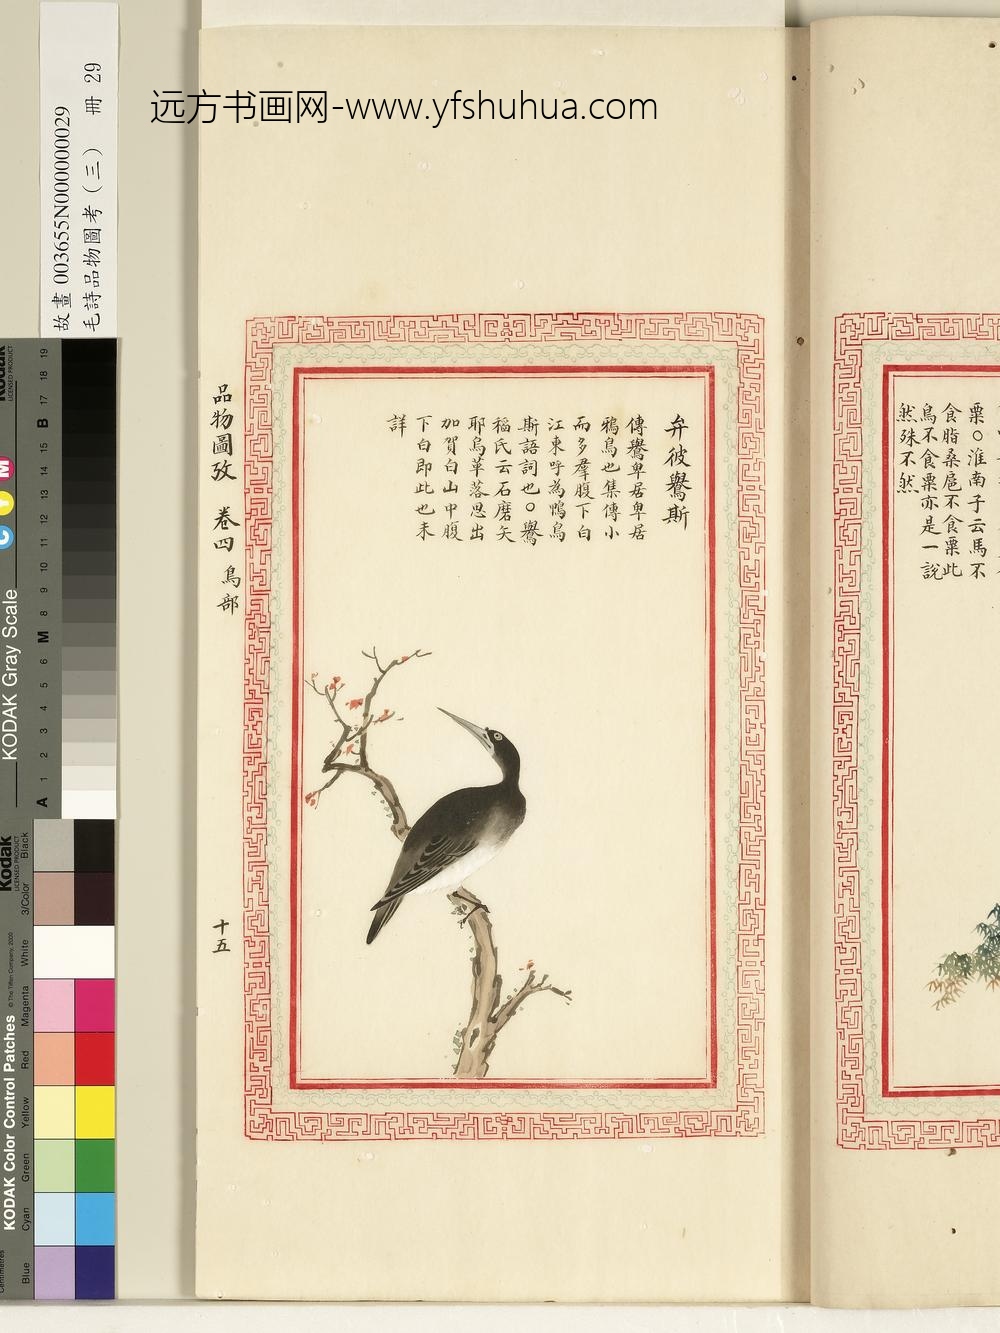 远方书画网-www.yfshuhua.com
故畫 003655N000000029
毛詩品物圖考（三） 冊 29
弁彼鸒斯
傳鸒卑居卑居
鴉鳥也集傳小
而多羣腹下白
江東呼為鴨烏
斯語詞也○鸒
稲氏云石磨矢
耶烏革落思出
加賀白山中腹
下白即此也未
詳
品物圖攷 卷四 鳥部
十五
粟○淮南子云馬不
食脂桑扈不食粟此
鳥不食粟亦是一說
然殊不然
KODAK Gray Scale
Kodak
LICENSED PRODUCT
A 1 2 3 4 5 6 M 8 9 10 11 12 13 14 15 B 17 18 19
C Y M
KODAK Color Control Patches
© The Tiffen Company, 2000
Kodak
LICENSED PRODUCT
Centimetres
Blue
Cyan
Green
Yellow
Red
Magenta
White
3/Color
Black